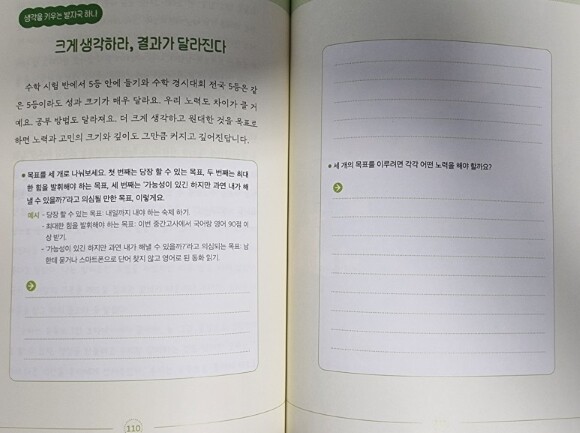 생각을 키우는 발자국 하나
크게 생각하라, 결과가 달라진다
수학 시험 반에서 5등 안에 들기와 수학 경시대회 전국 5등은 같
은 5등이라도 성과 크기가 매우 달라요. 우리 노력도 차이가 클 거
예요. 공부 방법도 달라져요. 더 크게 생각하고 원대한 것을 목표로
하면 노력과 고민의 크기와 깊이도 그만큼 커지고 깊어진답니다.
목표를 세 개로 나눠보세요. 첫 번째는 당장 할 수 있는 목표, 두 번째는 최대
한 힘을 발휘해야 하는 목표, 세 번째는 '가능성이 있긴 하지만 과연 내가 해
낼 수 있을까?'라고 의심될 만한 목표, 이렇게요.
예시 - 당장 할 수 있는 목표: 내일까지 내야 하는 숙제 하기.
- 최대한 힘을 발휘해야 하는 목표: 이번 중간고사에서 국어랑 영어 90점 이
상 받기.
- '가능성이 있긴 하지만 과연 내가 해낼 수 있을까?'라고 의심되는 목표: 남
한테 묻거나 스마트폰으로 단어 찾지 않고 영어로 된 동화 읽기.
110
세 개의 목표를 이루려면 각각 어떤 노력을 해야 할까요?